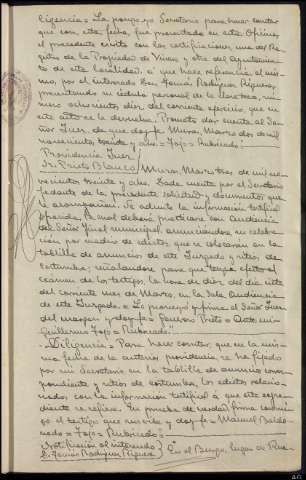 ligencia = La pongo yo Secretario para hacer constar
que con esta fecha, fue presentado en esta Oficina,
el precedente escrito con las certificaciones, una del Re-
gistro de la Propiedad de Vivero y otra del Ayuntamien-
to de esta localidad, a que hace referencia el mis-
mo, por el interesado Don Tomás Rodríguez Riguera,
presentando su cédula personal de la clase
mero ochocientos diez, del corriente ejercicio que en
este acto se le devuelve. Pronto dar cuenta al Se-
ñor Juez, de que doy fe. Muras, Marzo dos de mil
novecientos treinta y uno = Fojo = Rubricado =
Providencia Juez
Sr. Prieto Blanco } Muras, Marzo tres, de mil no-
vecientos treinta y uno. Dada cuenta por el Secretario
fedante de la precedente solicitud y documentos que
se acompañan. Se admite la información testifical
ofrecida, la cual deberá practicarse con audiencia
del Señor Fiscal municipal, anunciándose su celebra-
ción por medio de edictos que se colocarán en la
tablilla de anuncios de este Juzgado y sitios de
costumbre; señalándose para que tenga efecto el
examen de los testigos, la hora de diez del día siete
del corriente mes de Marzo, en la Sala Audiencia
de este Juzgado = Lo proveyó y firma el Señor Juez
del margen y doy fe = Generoso Prieto = Ante mí =
Guillermo Fojo = Rubricado =
Diligencia = Para hacer constar, que en la mis-
ma fecha de la anterior providencia se ha fijado
por mí Secretario en la tablilla de anuncios corres-
pondiente y sitios de costumbre, los edictos relacio-
nados, con la información testifical a que este expe-
diente se refiere. En prueba de verdad firma conmi-
go el testigo que suscribe y doy fe = Manuel Baldo-
nado = Fojo = Rubricado =
Notificación al interesado
D. Tomás Rodríguez Riguera } En el Burgo, lugar de